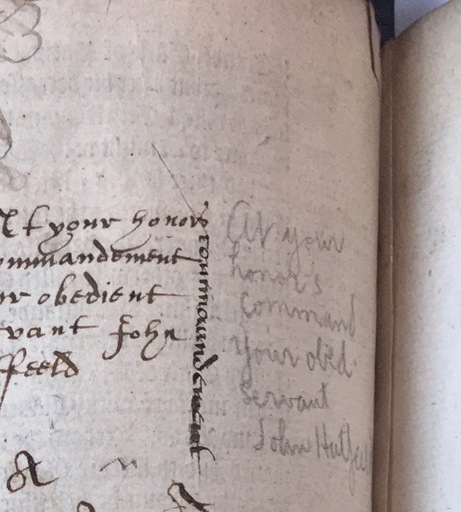 At your honors
ommandement
ur obedient
vant John
feeld
commaundement
At your
honor's
command
your obed.
Servant
John